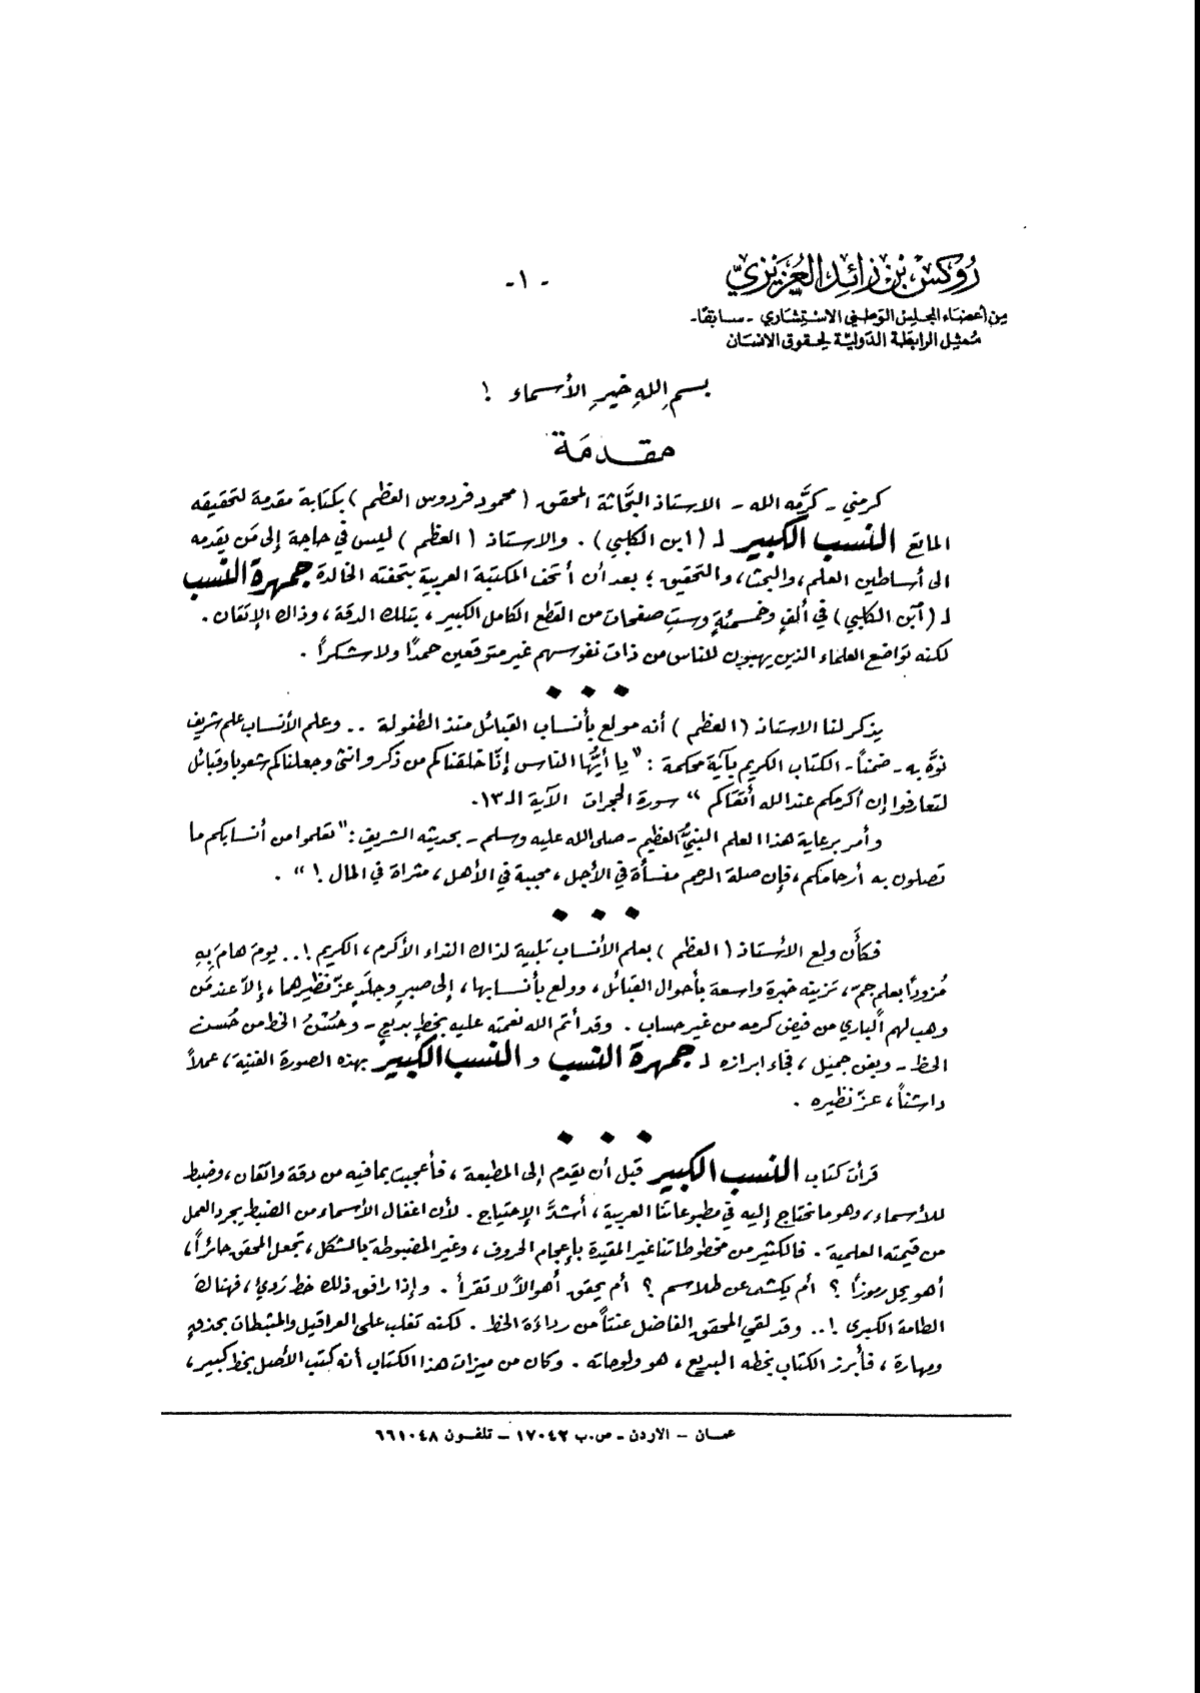 روكس بن زائد العزيزي
من أعضاء المجلس الوطني الاستشاري - سابقًا -
ممثل الرابطة الدولية لحقوق الانسان
- ١ -
بسمِ اللهِ خيرِ الأسماء !
مقدمَة
كرمني - كرَّمه الله - الاستاذ البحَّاثة المحقق (محمود فردوس العظم) بكتابة مقدمة لتحقيقه
الماتع النسب الكبير لـ (ابن الكلبي) . والاستاذ (العظم) ليس في حاجة إلى مَن يقدمه
الى أساطين العلم، والبحث، والتحقيق ؛ بعد أن أتحف المكتبة العربية بتحفته الخالدة جمهرة النسب
لـ (ابن الكلبي) في ألفٍ وخمسمئةٍ وستِ صفحات من القطع الكامل الكبير، بتلك الدقة، وذاك الإتقان .
لكنه تواضع العلماء الذين يهبون للناس من ذات نفوسهم غير متوقعين حمدًا ولا شكراً .
يذكر لنا الاستاذ (العظم) أنه مولع بأنساب القبائل منذ الطفولة .. وعلم الأنساب علم شريف
نوَّه به - ضمناً - الكتاب الكريم بآية محكمة : "يا أيُّها الناس إنّا خلقناكم من ذكر وانثى وجعلناكم شعوبا وقبائل
لتعارفوا إن أكرمكم عند الله أتقاكم" سورة الحجرات الآية الـ ١٣.
وأمر برعاية هذا العلم النبيُّ العظيم - صلى الله عليه وسلم - بحديثه الشريف : "تعلموا من أنسابكم ما
تصلون به أرحامكم، فإن صلة الرحم منسأة في الأجل، محببة في الأهل، مثراة في المال !" .
فكأن ولع الأستاذ (العظم) بعلم الأنساب تلبية لذاك النداء الأكرم، الكريم !.. يومَ هامَ بِهِ
مُزودًا بعلم جمّ، تزينه خبرة واسعة بأحوال القبائل، وولع بأنسابها، إلى صبرٍ وجلَدٍ عزّ نظيرهما، إلاّ عند مَن
وهب لهم الباري من فيض كرمه من غير حساب . وقد أتم الله نعمته عليه بخطٍ بديعٍ - وحُسْنُ الخط من حُسن
الحظ - وبفن جميل، فجاء ابرازه لـ جمهرة النسب و النسب الكبير بهذه الصورة الفنية، عملاً
داشناً، عزّ نظيره .
قرأت كتاب النسب الكبير قبل أن يقدم إلى المطبعة، فأعجبت بما فيه من دقة واتقان، وضبط
للأسماء، وهو ما نحتاج إليه في مطبوعاتنا العربية، أشدَّ الإحتياج . لأن اغفال الأسماء من الضبط يجرد العمل
من قيمته العلمية . فالكثير من مخطوطاتنا غير المقيدة بإعجام الحروف، وغير المضبوطة بالشكل، تجعل المحقق حائراً،
أهو يحل رموزاً ؟ أم يكشف عن طلاسم ؟ أم يحقق أهوالاً لا تقرأ . وإذا رافق ذلك خط رَديءٌ، فهناك
الطامة الكبرى !.. وقد لقي المحقق الفاضل عنتاً من رداءة الخط . لكنه تغلب على العراقيل والمثبطات بحذقٍ
ومهارة، فأبرز الكتاب بخطه البديع، هو ولوحاته . وكان من ميزات هذا الكتاب أنه كتب الأصل بخط كبير،
عمـان - الاردن - ص.ب ١٧٠٤٢ - تلفـون ٦٦١٠٤٨